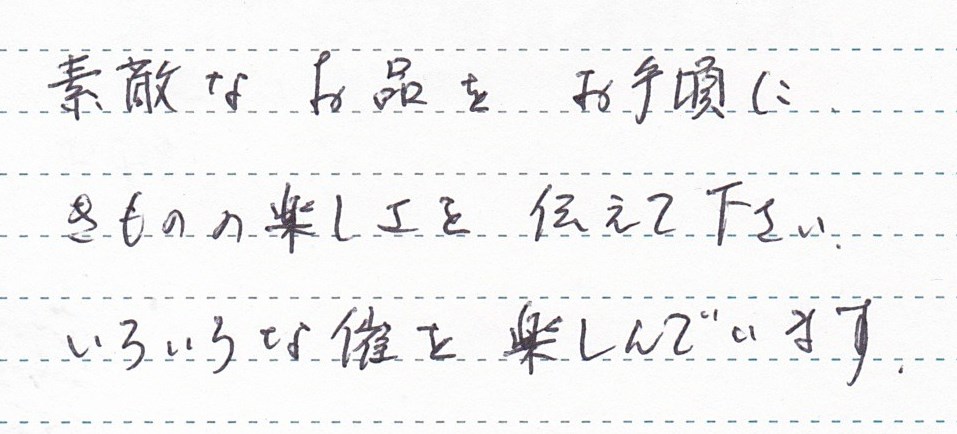 素敵なお品をお手頃に.
きものの楽しさを伝えて下さい.
いろいろな催を楽しんでいます.